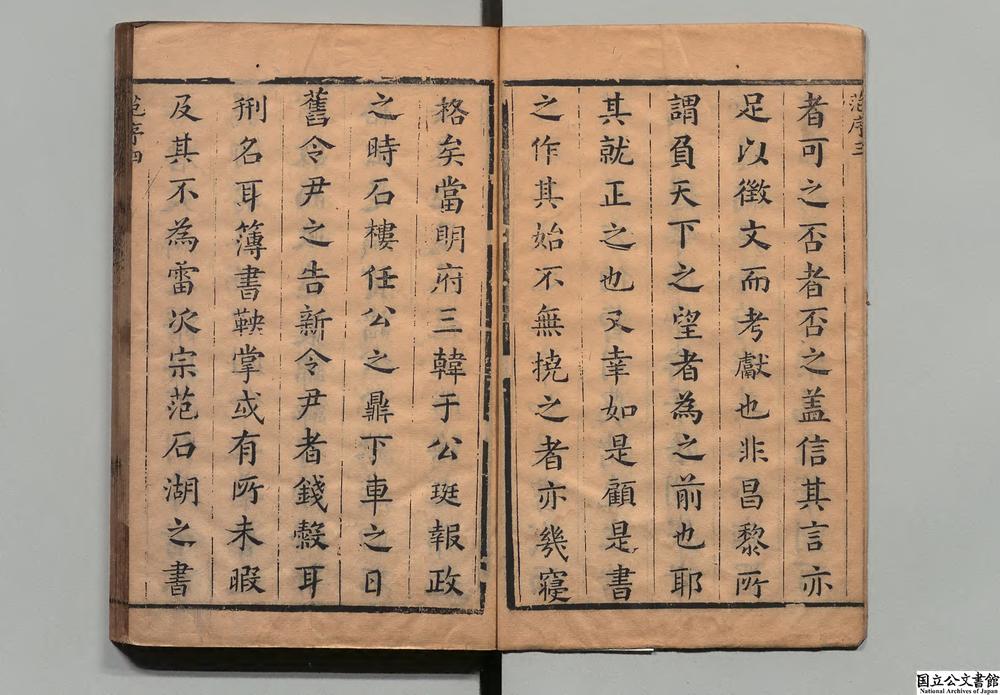 范序三
者可之否者否之盖信其言亦
足以徵文而考獻也非昌黎所
謂負天下之望者為之前也耶
其就正之也又幸如是顧是書
之作其始不無撓之者亦幾寢
格矣當明府三韓于公珽報政
之時石樓任公之鼐下車之日
舊令尹之告新令尹者錢穀耳
刑名耳簿書鞅掌或有所未暇
及其不為雷次宗范石湖之書
范序四
国立公文書館
National Archives of Japan